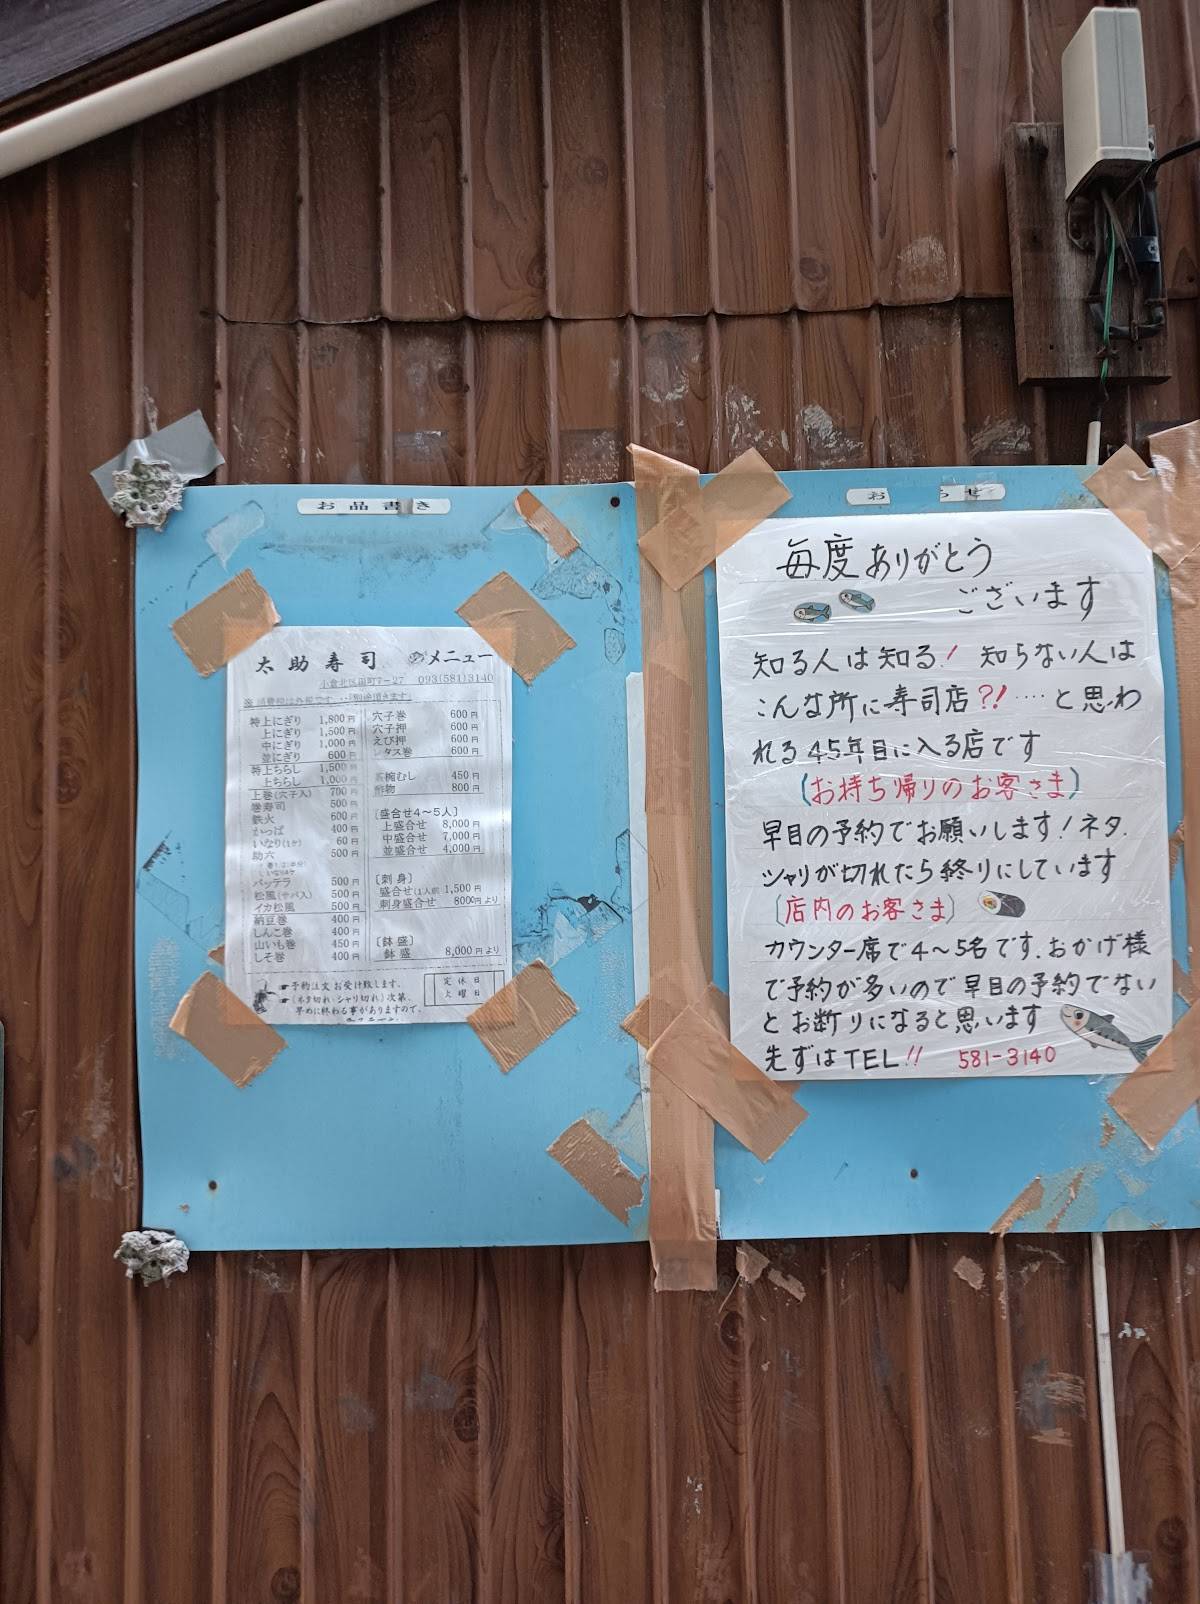 お品書き
太助寿司 メニュー
小倉北区田町7-27 093(581)3140
※消費税は外税です…「別途頂きます」
特上にぎり 1,800円
上にぎり 1,500円
中にぎり 1,000円
並にぎり 600円
特上ちらし 1,500円
上ちらし 1,000円
上巻(穴子入) 700円
巻寿司 500円
鉄火 600円
かっぱ 400円
いなり(1ケ) 60円
助六 500円
バッテラ 500円
松風(サバ入) 500円
イカ松風 500円
納豆巻 400円
しんこ巻 400円
山いも巻 450円
しそ巻 400円
穴子巻 600円
穴子押 600円
えび押 600円
レタス巻 600円
茶椀むし 450円
酢物 800円
〔盛合せ4〜5人〕
上盛合せ 8,000円
中盛合せ 7,000円
並盛合せ 4,000円
〔刺身〕
盛合せ(1人前 1,500円
刺身盛合せ 円より
〔鉢盛〕
鉢盛 8,000円より
☛予約注文お受け致します。
☛(ネタ切れ・シャリ切れ)次第、
早めに終わる事がありますので、
定休日
火曜日
お らせ
毎度ありがとう
ございます
知る人は知る! 知らない人は
こんな所に寿司店?!‥‥と思わ
れる45年目に入る店です
(お持ち帰りのお客さま)
早目の予約でお願いします!ネタ.
シャリが切れたら終りにしています
(店内のお客さま)
カウンター席で4〜5名です.おかげ様
で予約が多いので早目の予約でない
とお断りになると思います
先ずはTEL!! 581-3140